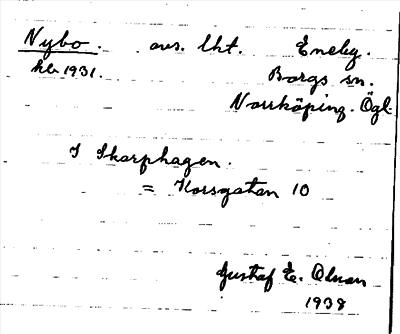 Nybo. avs. lht. Eneby.
kb 1931. Borgs sn.
Norrköping. Ögl.
I Skarphagen.
= Korsgatan 10
Gustaf E. Olson
1938